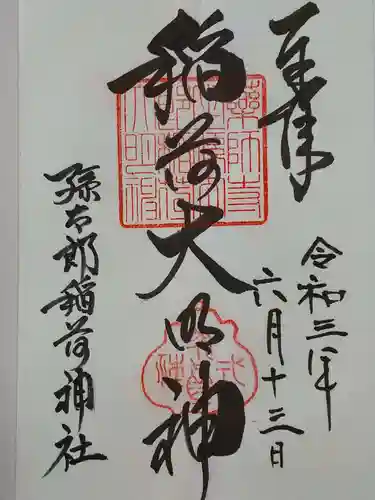 奉拝
令和三年
六月十三日
稲荷大明神
弥太郎稲荷神社